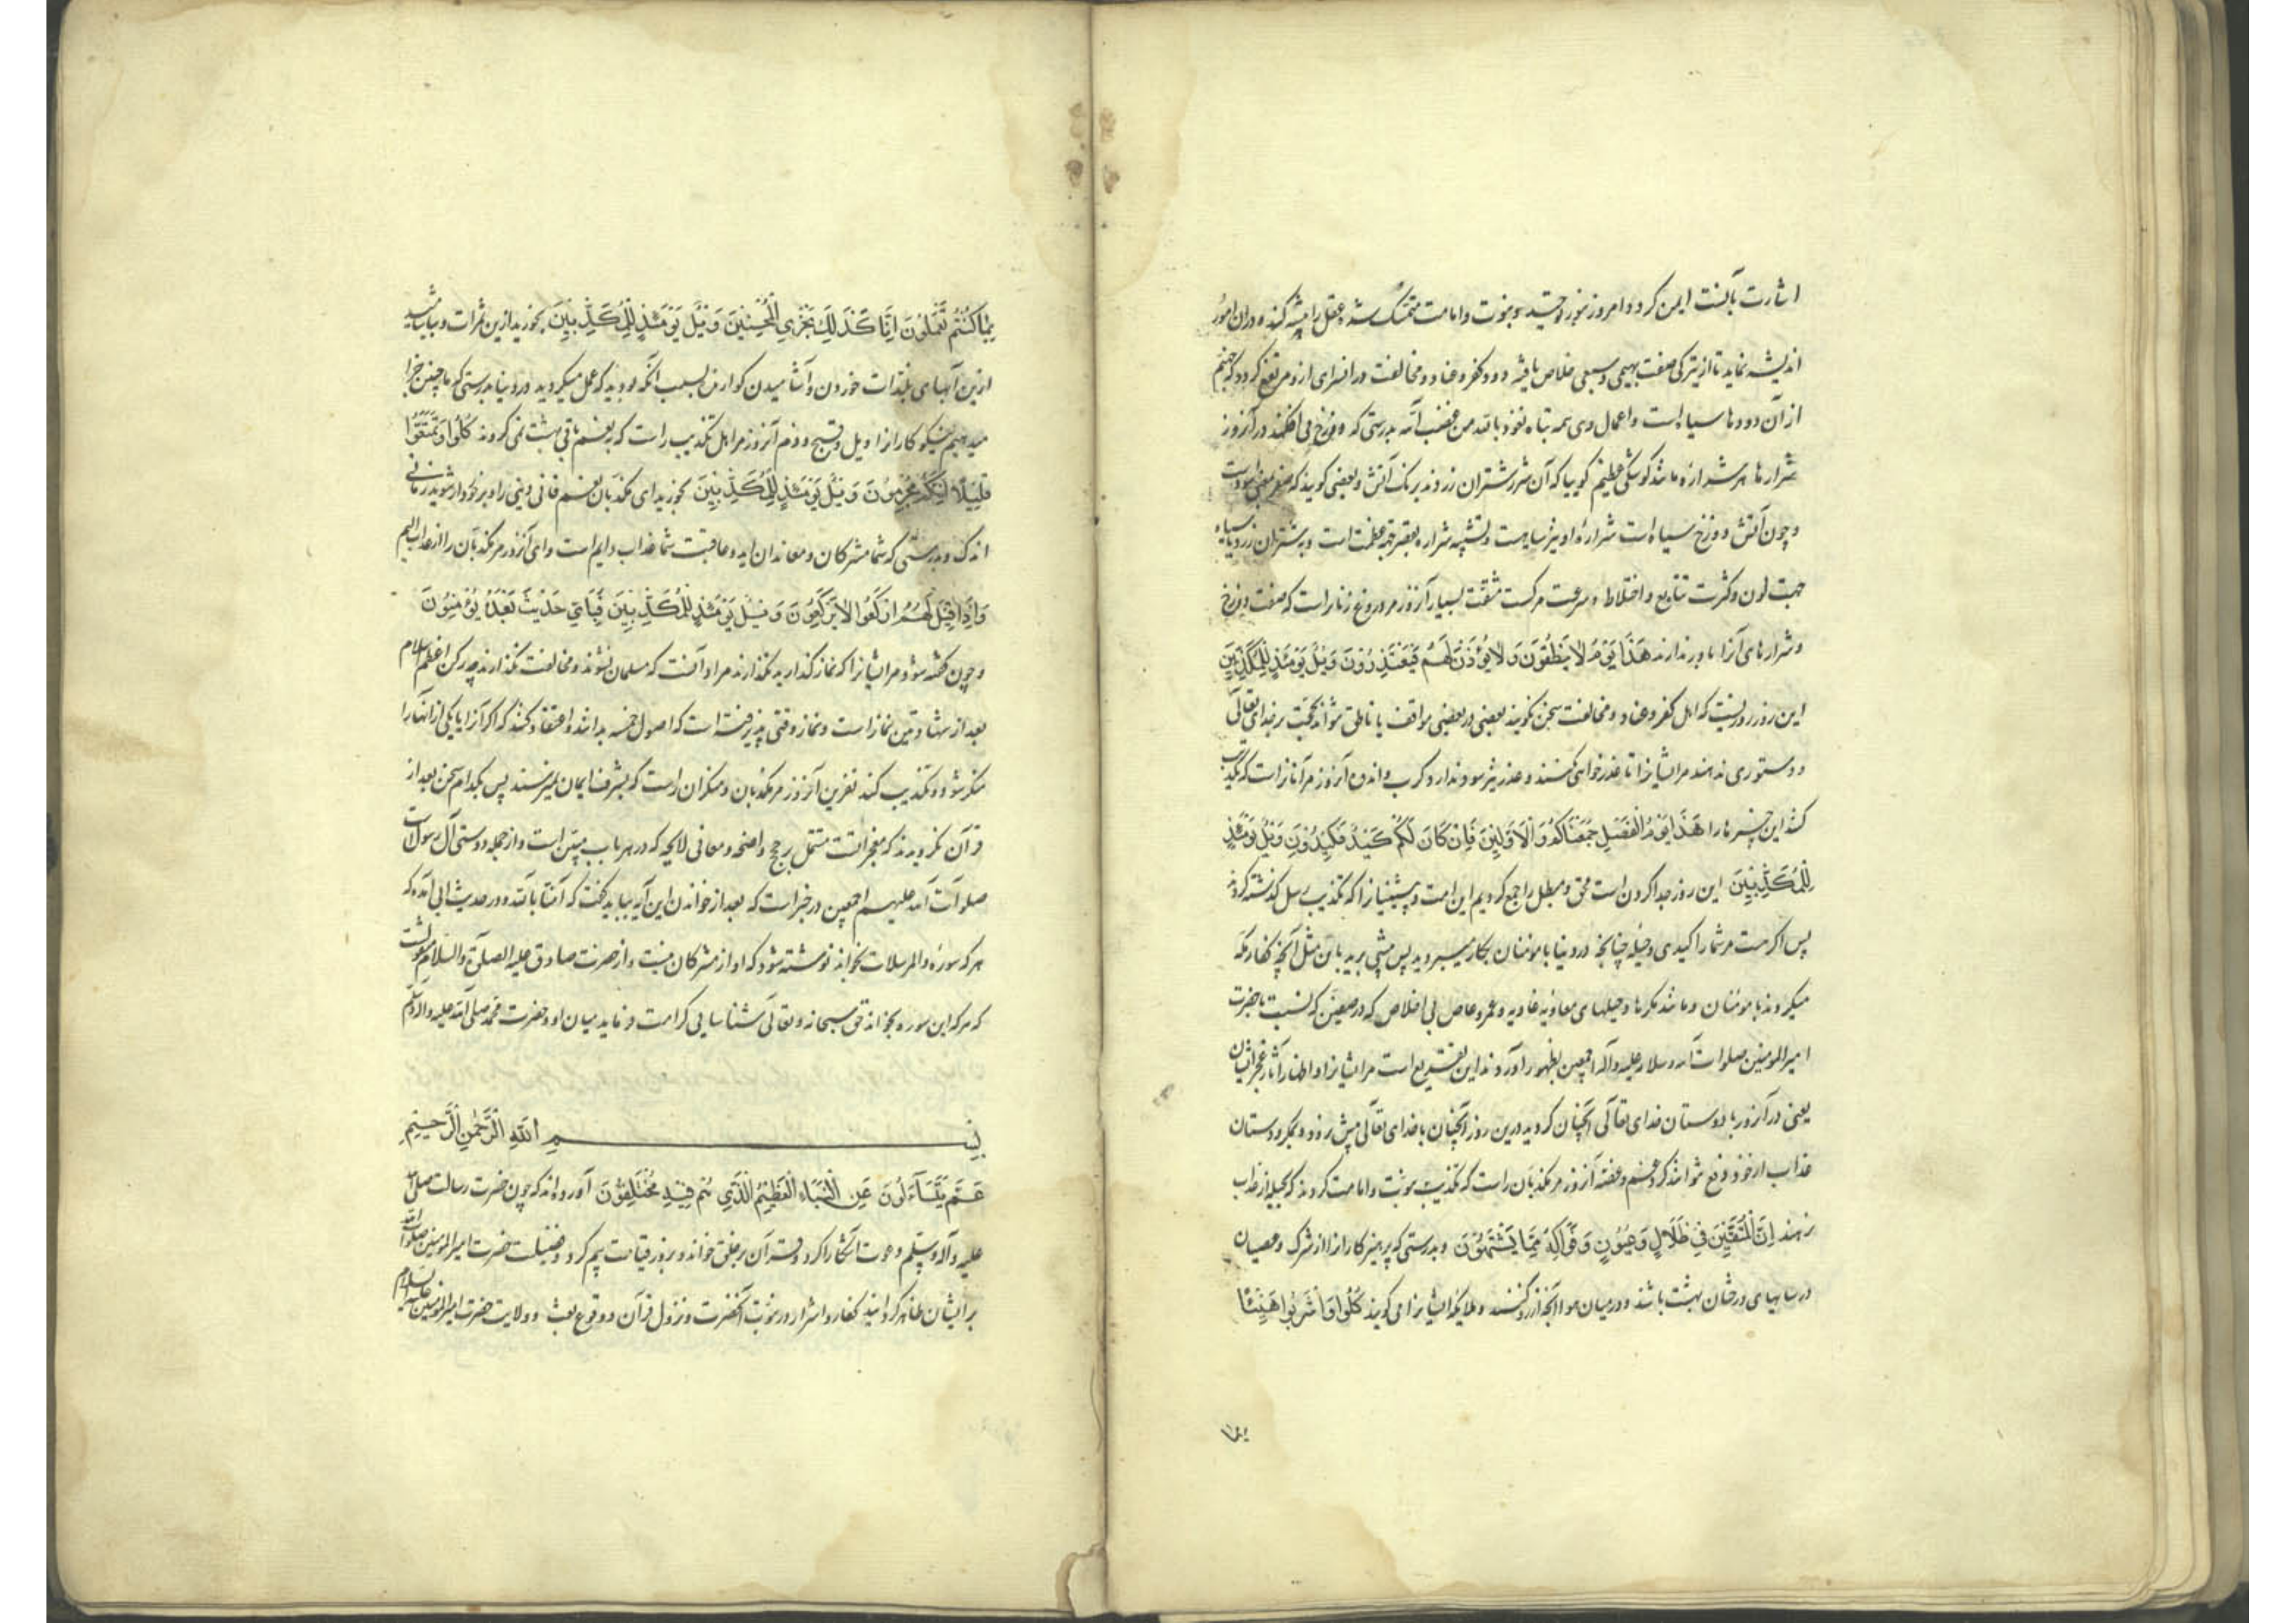 اشارت بآنست ایمن کردد امروز بنور توحید و نبوت و امامت متمسک شده عقل را پیشه کند و در آن امور
اندیشه نماید تا از تیرکی صفت بهیمی و سبعی خلاص یافته دود کفر و عناد و مخالفت در افسرای او مرتفع کردد که جهنم
از آن دودها سیاه است و اعمال وی همه تباه نعوذ بالله من غضب الله بدرستی که دوزخ می افکند در آنروز
شرارها هر شراره مانند کوشکی عظیم کوییا که آن شرر شتران زردند برنک آتش و بعضی کویند که صفر بمعنی سود است
و چون آتش دوزخ سیاه است شرارهٔ او نیز سیاهست و تشبیه شراره بقصر جهة عظمت است و بشتران زرد یا سیاه
جهت لون و کثرت تتابع و اختلاط و سرعت حرکت مشقت بسیار آنروز مر دروغ زنانراست که صفت دوزخ
و شرارهای آنرا باور ندارند هَذَا يَوْمُ لَا يَنْطِقُونَ وَلَا يُؤْذَنُ لَهُمْ فَيَعْتَذِرُونَ وَيْلٌ يَوْمَئِذٍ لِلْمُكَذِّبِينَ
این روز روزیست که اهل کفر و عناد و مخالفت سخن نکویند یعنی در بعضی مواقف یا ناطق نتوانند بحجت بر خدای تعالی
و دستوری ندهند مر ایشانرا تا عذر خواهی کنند و عذر نیز سود ندارد و کرب و اندوه آنروز مر آنانراست که تکذیب
کنند این خبرها را هَذَا يَوْمُ الْفَصْلِ جَمَعْنَاكُمْ وَالْأَوَّلِينَ فَإِنْ كَانَ لَكُمْ كَيْدٌ فَكِيدُونِ وَيْلٌ يَوْمَئِذٍ
لِلْمُكَذِّبِينَ این روز جدا کردن است محق و مبطل را جمع کردیم این امت و پیشینیانرا که تکذیب رسل کذشته کردند
پس اکر هست مر شما را کیدی و حیلهٔ چنانچه در دنیا با مومنان بکار میبردید پس پیش برید با من مثل آنچه کفار مکه
میکردند با مومنان و مانند مکرها و حیلهای معاویه غاویه و عمرو عاص بی اخلاص که در صفین که نسبت بحضرت
امیر المومنین صلوات الله و سلامه علیه و آله اجمعین بظهور آوردند این تقریع است مر ایشانرا و اظهار آثار عجز ایشان
یعنی در آنروز با دوستان خدای تعالی آنچنان کردید درین روز آنچنان با خدای تعالی پیش نرود و بمکر و دستان
عذاب از خود دفع نتوانند کرد و غم و غصه آنروز مر مکذبان راست که تکذیب نبوت و امامت کردند که بحیله از عذاب
نرهند اِنَّ الْمُتَّقِينَ فِي ظِلَالٍ وَعُيُونٍ وَفَوَاكِهَ مِمَّا يَشْتَهُونَ و بدرستی که پرهیزکارانرا از شرک و عصیان
در سایهای درختان بهشت باشند و در میان میوها آنچه آرزو کنند و ملایکه ایشانرا می کویند كُلُوا وَاشْرَبُوا هَنِيئًا
بِمَا كُنْتُمْ تَعْمَلُونَ اِنَّا كَذَلِكَ نَجْزِي الْمُحْسِنِينَ وَيْلٌ يَوْمَئِذٍ لِلْمُكَذِّبِينَ بخورید ازین ثمرات و بیاشامید
ازین آبهای بلذات خوردن و آشامیدن کوارنده بسبب آنکه بودید که عمل میکردید در دنیا بدرستی که ما چنین جزا
میدهیم نیکو کارانرا و ویل و قبیح و ذم آنروز مر اهل تکذیب راست که به نعیم باقی بهشت نمی کروند كُلُوا وَتَمَتَّعُوا
قَلِيلًا إِنَّكُمْ مُجْرِمُونَ وَيْلٌ يَوْمَئِذٍ لِلْمُكَذِّبِينَ بخورید ای مکذبان نعیم فانی دنیی را و برخوردار شوید زمانی
اندک و بدرستی که شما مشرکان و معاندان اید و عاقبت شما عذاب دایم است وای آنروز مر مکذبان را از عذاب الیم
وَاِذَا قِيلَ لَهُمُ ارْكَعُوا لَا يَرْكَعُونَ وَيْلٌ يَوْمَئِذٍ لِلْمُكَذِّبِينَ فَبِأَيِّ حَدِيثٍ بَعْدَهُ يُؤْمِنُونَ
و چون کفته شود مر ایشانرا که نماز کذارید نکذارند مراد آنست که مسلمان نشوند و مخالفت نکذارند چه رکن اعظم اسلام
بعد از شهادتین نماز است و نماز وقتی پذیرفته است که اصول خمسه بدانند و اعتقاد کنند که اکر آنرا یا یکی از آنها را
منکر شود و تکذیب کند نفرین آنروز مر مکذبان و منکران راست که بشرف ایمان نمیرسند پس بکدام سخن بعد از
قرآن بکروید که معجزاتست مشتمل بر حجج واضحه و معانی لایحه که در هر باب مبین است و از جمله دوستی آل رسول است
صلوات الله علیهم اجمعین در خبر است که بعد از خواندن این آیه بباید کفت که آمنا بالله و در حدیث ابی آمده که
هر که سورهٔ والمرسلات بخواند نوشته شود که او از مشرکان نیست و از حضرت صادق علیه الصلوة والسلام مرویست
که هر که این سوره بخواند حق سبحانه و تعالی شناسایی کرامت فرماید میان او و حضرت محمد صلی الله علیه و آله وسلم
بِسْمِ اللَّهِ الرَّحْمَنِ الرَّحِيمِ
عَمَّ يَتَسَاءَلُونَ عَنِ النَّبَاءِ الْعَظِيمِ الَّذِي هُمْ فِيهِ مُخْتَلِفُونَ آورده اند که چون حضرت رسالت صلی الله
علیه وآله وسلم دعوت آشکارا کرد و قرآن بر خلق خواند و بروز قیامت بیم کرد و فضیلت حضرت امیر المومنین صلوات الله
بر ایشان ظاهر کردانید کفار و اشرار در نبوت آنحضرت و نزول قرآن و وقوع بعث و ولایت حضرت امیر المومنین علیه السلام